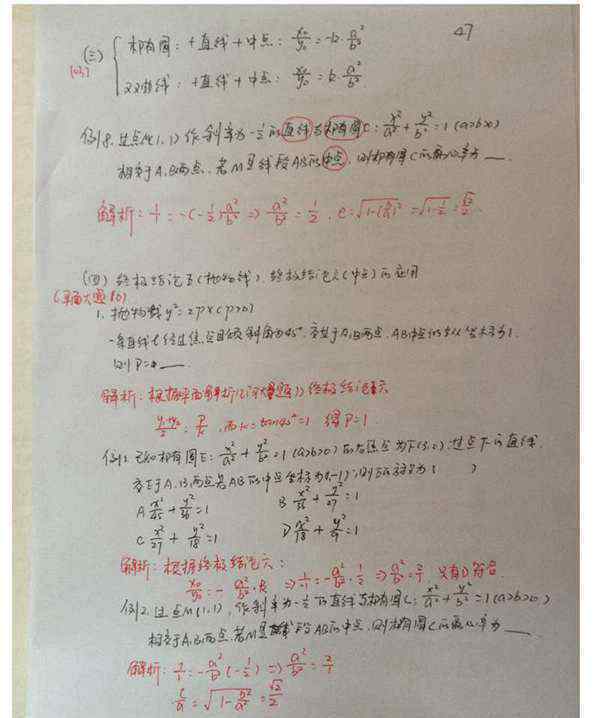 47
(三) { 椭圆:+直线+中点: x₀/y₀ = -k·a²/b²
双曲线:+直线+中点: x₀/y₀ = k·a²/b²
例8.过点M(1,1)作斜率为-1/2的直线与椭圆C: x²/a² + y²/b² = 1 (a>b>0)
相交于A,B两点,若M是线段AB的中点,则椭圆C的离心率为___.
解析: 1/1 = -(-1/2)a²/b² => a²/b² = 1/2 . e = √1-(b/a)² = √1-1/2 = √2/2
(四) 终极结论五(抛物线),终极结论六(中点)的应用
1. 抛物线y²=2px(p>0)
一条直线l经过焦点且倾斜角为45°,交于A,B两点,AB中点的纵坐标为1.
则P=___.
解析: 根据平面解析几何大题 终极结论六
(y₁+y₂)/2 = P/k ,而k=tan45°=1 得P=1
例1.已知椭圆E: x²/a² + y²/b² = 1 (a>b>0)的右焦点为F(3,0),过点F的直线
交E于A,B两点若AB的中点坐标为(1,-1),则E的方程为( )
A x²/45 + y²/36 = 1 B x²/36 + y²/27 = 1
C x²/27 + y²/18 = 1 D x²/18 + y²/9 = 1
解析: 根据终极结论六:
x₀/y₀ = - a²/b²·k => 1/-1 = -a²/b²·1/2 => a²/b² = 2/1 只有D符合.
例2.过点M(1,1),作斜率为-1/2的直线与椭圆C: x²/a² + y²/b² = 1 (a>b>0)
相交于A,B两点,若M是线段AB的中点,则椭圆C的离心率为___
解析: 1/1 = -a²/b²(-1/2) => a²/b² = 2/1
c/a = √1-b²/a² = √2/2